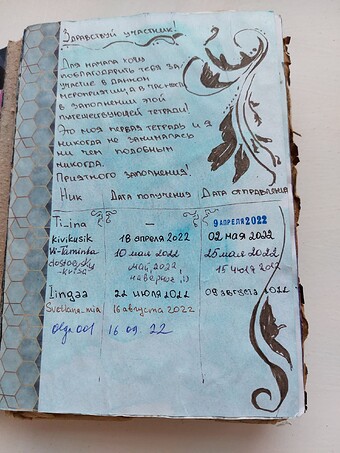 Здравствуй участник!
Для начала хочу
поблагодарить тебя за
участие в данном
мероприятии, а в частности
в заполнении этой
путешествующей тетради!
Это моя первая тетрадь и я
никогда не занималась
ни чем подобным
никогда.
Приятного заполнения!
Ник Дата получения Дата отправления
Ti_ina — 9 АПРЕЛЯ 2022
kivikusik 18 апреля 2022 02 мая 2022
Vi-Taminka 10 мая 2022 25 мая 2022
dostoevsky_krisa май, 2022, 15 июля 2022
наверное
Lingaa 22 июля 2022 09 августа 2022
Svetlana_mia 16 августа 2022
Olga001 16.09.22